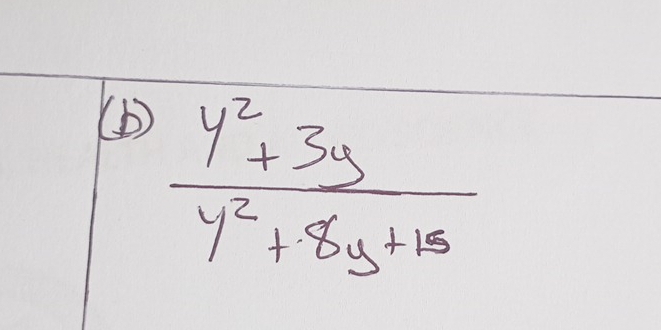 (b) y² + 3y
y² + 8y + 15